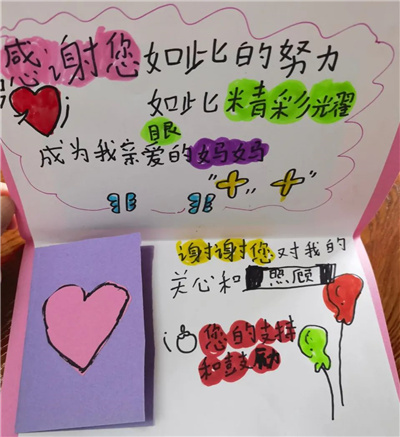 感谢您如此的努力
如此精彩光耀
眼
成为我亲爱的妈妈
谢谢您对我的
关心和照顾
您的支持
和鼓励